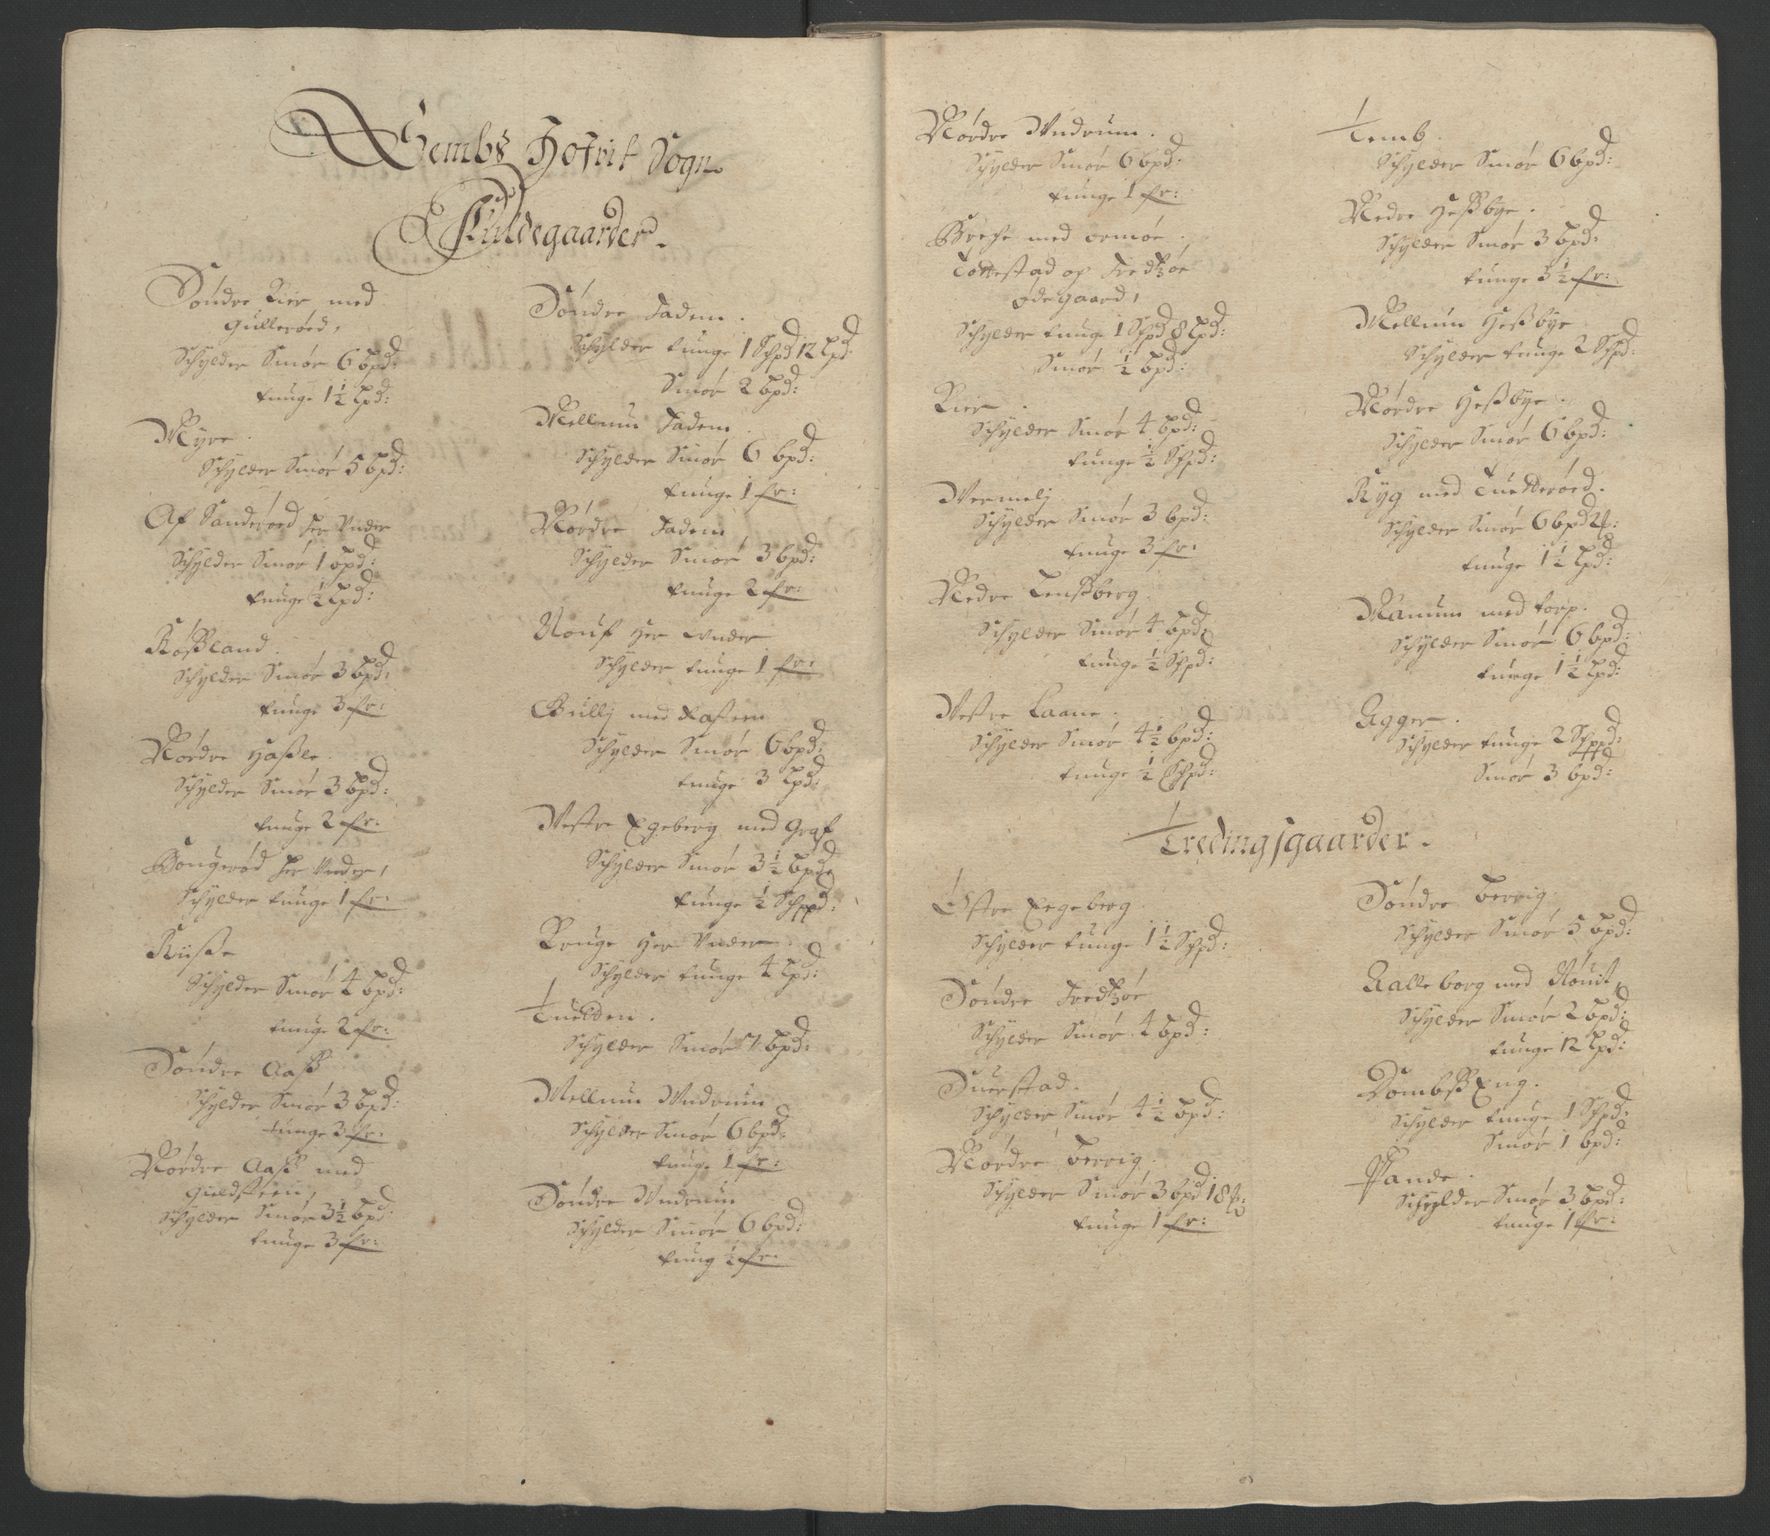 Sembs Hofvit Sogn
Fuldegaarder.
Søndre Kier med
Gullerød,
Schylder Smør 6 bpd:
tunge 1½ Lpd:
Myre.
Schylder Smør 5 bpd:
Af Sanderød her under
Schylder Smør 1 bpd:
tunge ½ Lpd:
Røssland.
Schylder Smør 3 bpd:
tunge 3 fr:
Nørdre Hassle.
Schylder Smør 3 bpd:
tunge 2 fr:
Gongerød her under,
Schylder tunge 1 fr:
Russe
Schylder Smør 4 bpd:
tunge 2 fr:
Søndre Aass
Schylder Smør 3 bpd:
tunge 3 fr:
Nørdre Aass med
Gieldsteen,
Schylder Smør 3½ bpd:
tunge 3 fr:
Søndre Jadem.
Schylder tunge 1 Schpd 12 Lpd:
Smør 2 bpd:
Mellum Jadem.
Schylder Smør 6 bpd:
tunge 1 fr:
Nørdre Jadem
Schylder Smør 3 bpd:
tunge 2 fr:
Rouf her under
Schylder tunge 1 fr:
Gullj med
Schylder Smør 6 bpd:
tunge 3 Lpd:
Westre Egeberg med Graf
Schylder Smør 3½ bpd:
tunge ½ Schpd:
Kruge her under.
Schylder tunge 4 Lpd:
Tuelden.
Schylder Smør 7 bpd:
Mellum Undrum
Schylder Smør 6 bpd:
tunge 1 fr:
Søndre Undrum
Schylder Smør 6 bpd:
tung ½ fr:
Nørdre Undrum.
Schylder Smør 6 bpd:
tunge 1 fr:
Greffe med ormøe.
Tottestad og Fredtzøe
ødegaard,
Schylder tunge 1 Schpd 8 Lpd:
Smør ½ bpd:
Kier.
Schylder Smør 4 bpd:
tunge ½ Schpd:
Wermelj
Schylder Smør 3 bpd:
tunge 3 fr:
Nedre Tenssberg.
Schylder Smør 4 bpd:
tunge ½ Schpd:
Vestre Laane.
Schylder Smør 4½ bpd:
tunge ½ Schpd:
Temb.
Schylder Smør 6 bpd:
Nedre Hessbye.
Schylder Smør 3 bpd:
tunge 3½ fr:
Mellum Hessbye
Schylder tunge 2 Schpd:
Nørdre Hessbye.
Schylder Smør 6 bpd:
Ryg med Tuetterød.
Schylder Smør 6 bpd
tunge 1½ Lpd:
Manum med torp.
Schylder Smør 6 bpd:
tunge 1½ Lpd:
Agger.
Schylder tunge 2 Schpd:
Smør 3 bpd:
Tredingsgaarder.
Østre Eegeberg
Schylder tunge 1½ Schpd:
Søndre Fredtzøe
Schylder Smør 4 bpd:
Duerstad.
Schylder Smør 4½ bpd:
Nørdre Berrig.
Schylder Smør 3 bpd 18
tunge 1 fr:
Søndre Berrig.
Schylder Smør 5 bpd:
Ralleborg med
Schylder Smør 2 bpd:
tunge 12 Lpd:
Rombss Eng.
Schylder tunge 1 Schpd:
Smør 1 bpd:
Pande.
Schylder Smør 3 bpd:
tunge 1 fr: